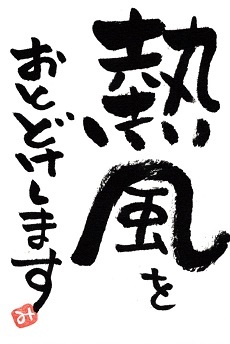 熱風を
おとどけします
み